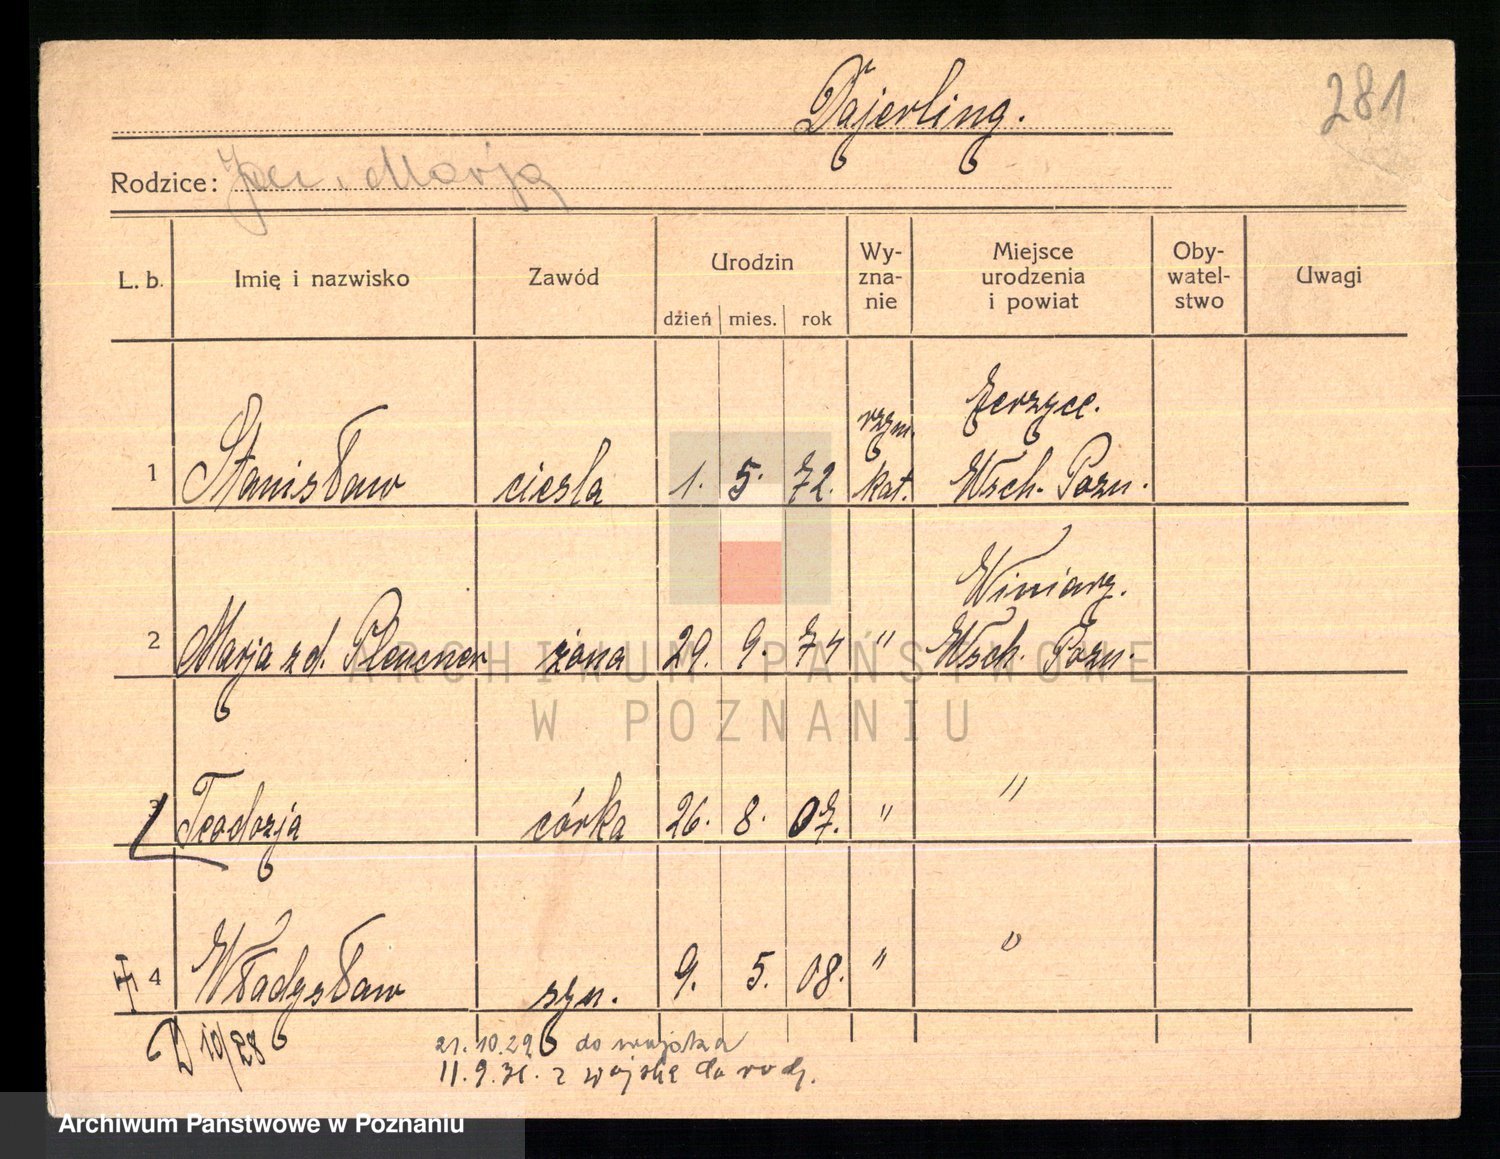 Dajerling.
281
Rodzice: Marja
L. b. Imię i nazwisko Zawód Urodzin dzień mies. rok Wy-zna-nie Miejsce urodzenia i powiat Oby-watel-stwo Uwagi
1 Stanisław cieśla 1. 5. 72. rzym. kat. Jerzyce. Wsch. Pozn.
2 Marja z d. Plencner żona 29. 9. 74 " Winiary. Wsch. Pozn.
3 Teodozja córka 26. 8. 07. " "
4 Władysław syn. 9. 5. 08. " "
D 10/28
21.10.29 do wojska
11.9.31. z wojska do rodz.
ARCHIWUM PAŃSTWOWE
W POZNANIU
Archiwum Państwowe w Poznaniu